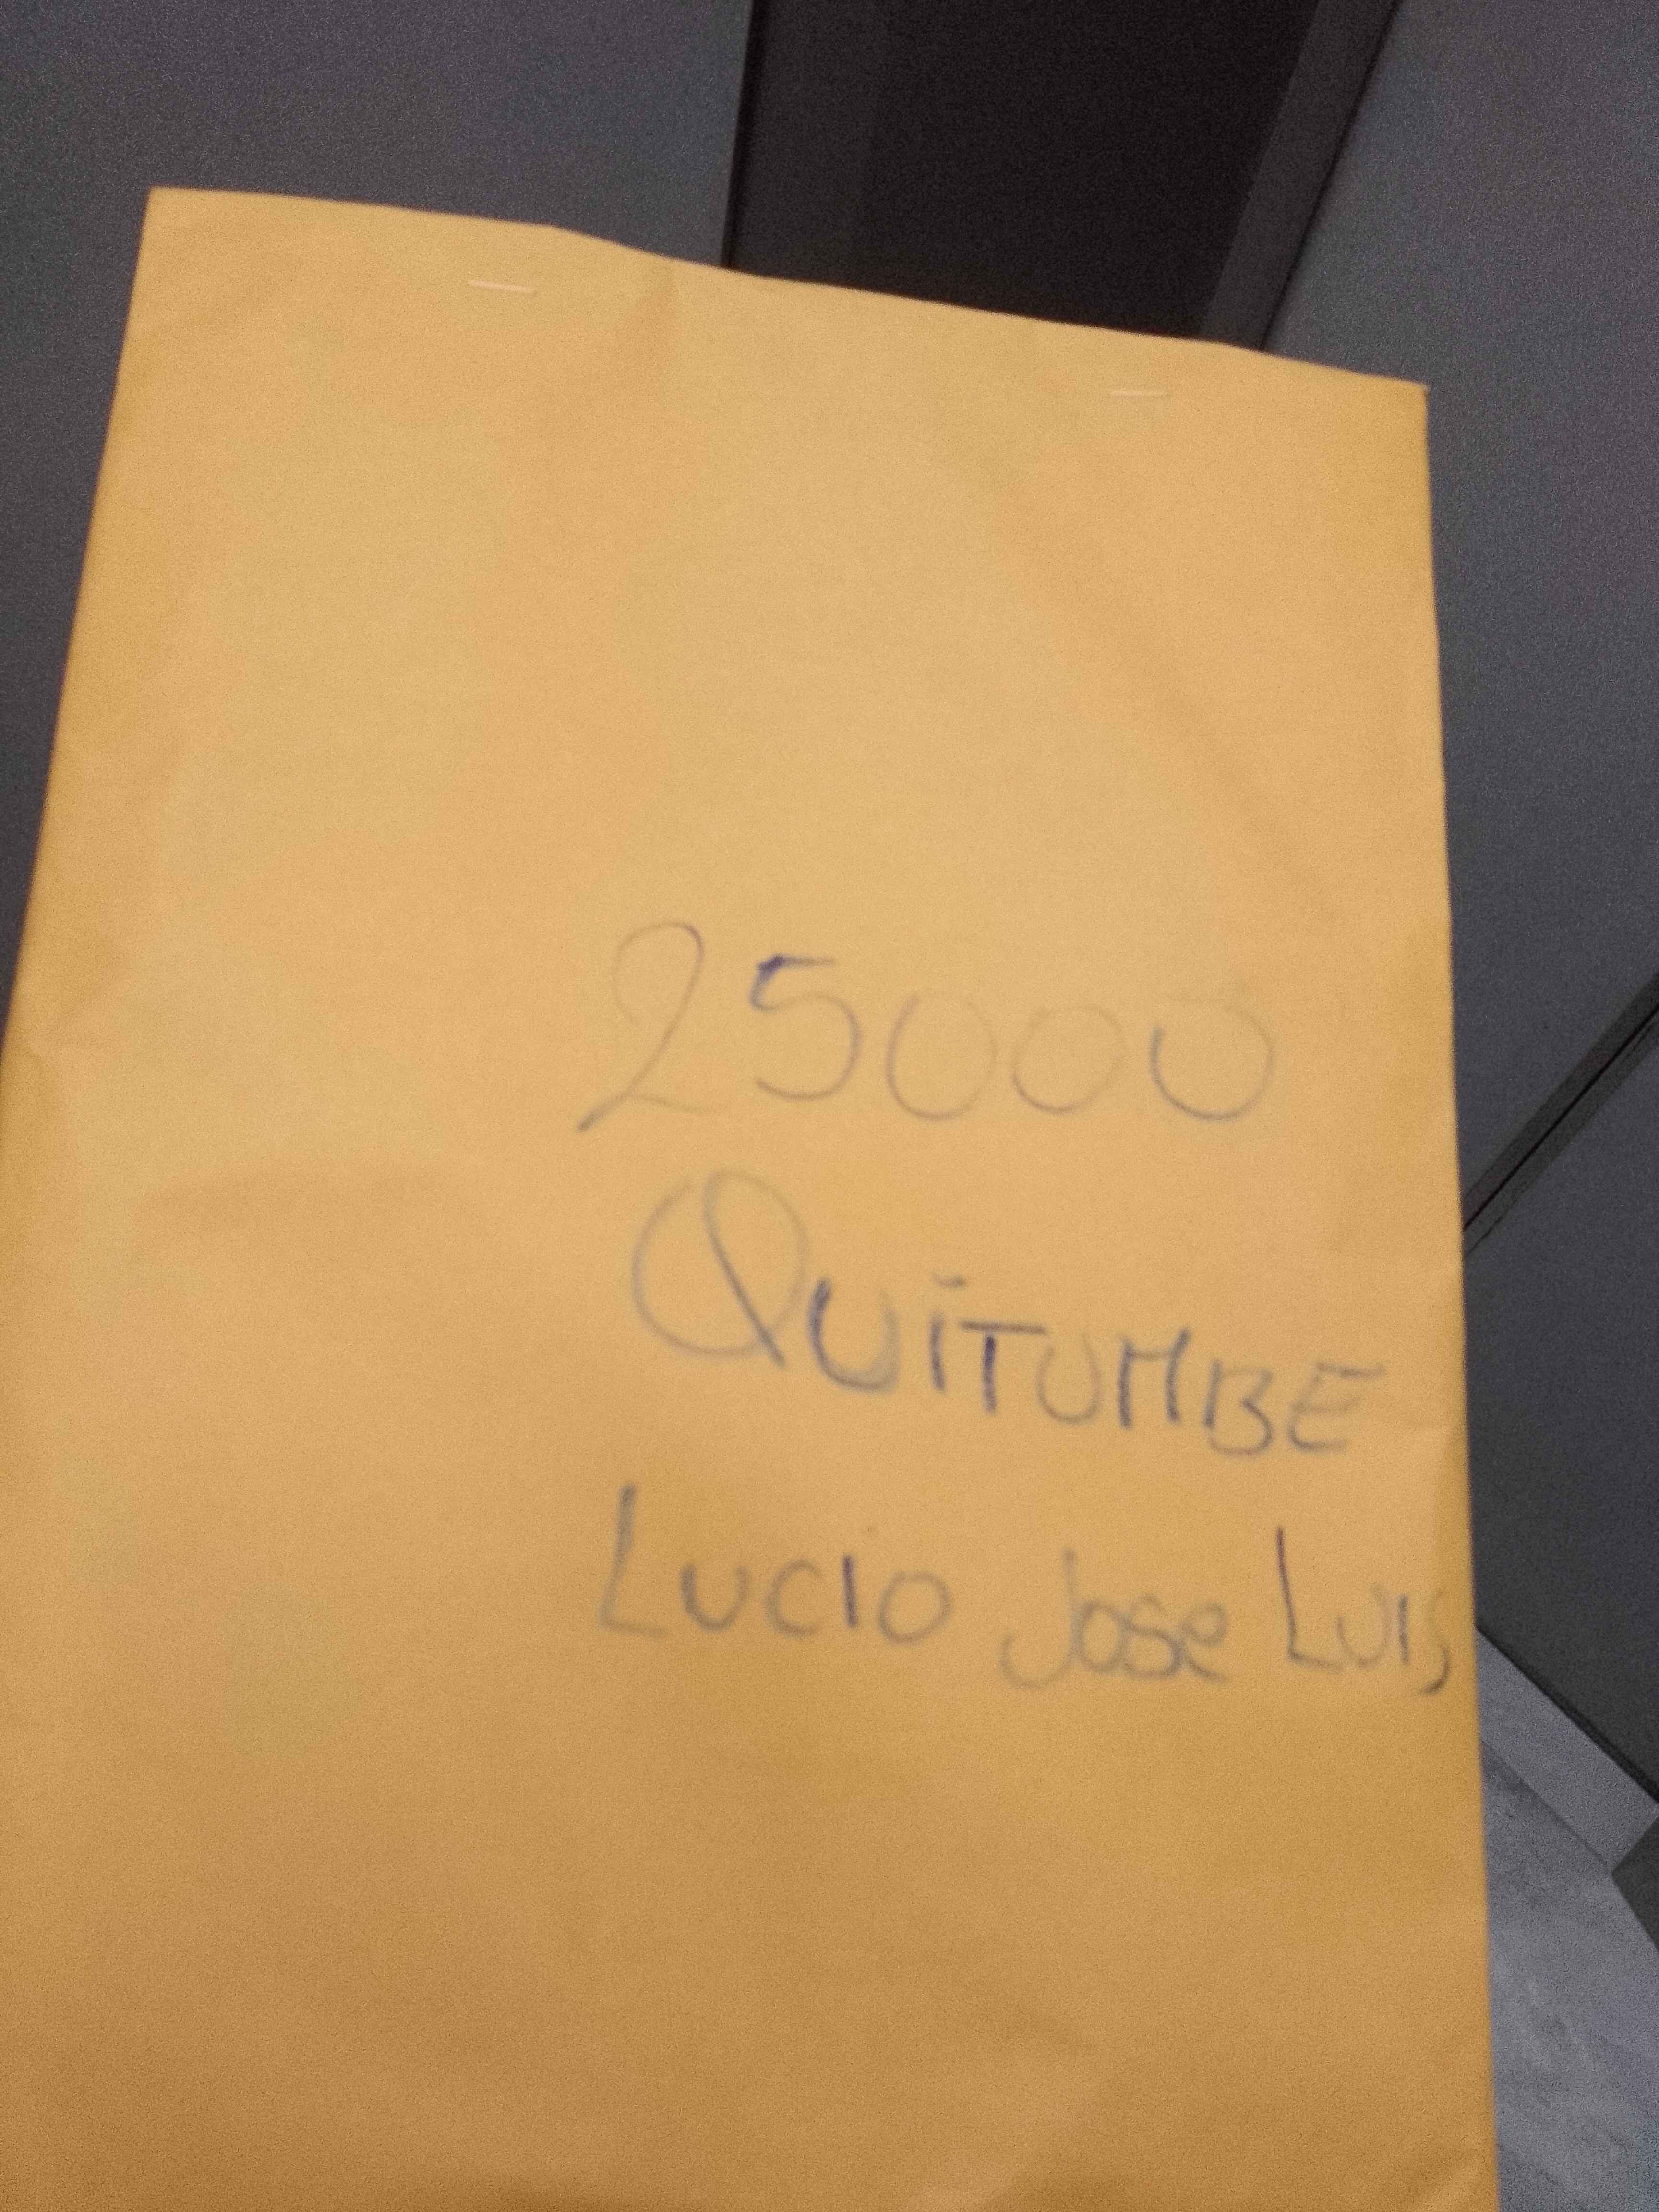 25000
QUITUMBE
LUCIO Jose LUIS